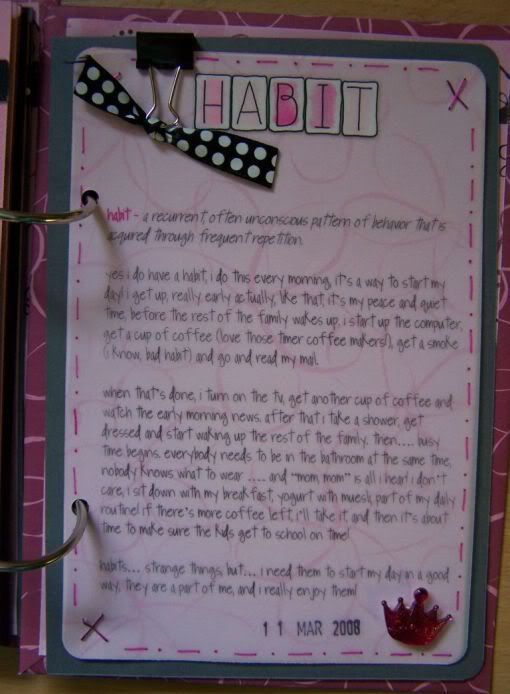 HABIT
habit - a recurrent, often unconscious pattern of behavior that is
acquired through frequent repetition.
yes i do have a habit, i do this every morning, it's a way to start my
day! i get up, really early actually, like that, it's my peace and quiet
time, before the rest of the family wakes up. i start up the computer,
get a cup of coffee (love those timer coffee makers!), get a smoke
(i know, bad habit) and go and read my mail.
when that's done, i turn on the tv, get another cup of coffee and
watch the early morning news. after that i take a shower, get
dressed and start waking up the rest of the family. then.... busy
time begins. everybody needs to be in the bathroom at the same time,
nobody knows what to wear .... and "mom, mom" is all i hear! i don't
care, i sit down with my breakfast, yogurt with muesli, part of my daily
routine! if there's more coffee left, i'll take it, and then it's about
time to make sure the kids get to school on time!
habits... strange things, but... i need them to start my day in a good
way, they are a part of me, and i really enjoy them!
11 MAR 2008